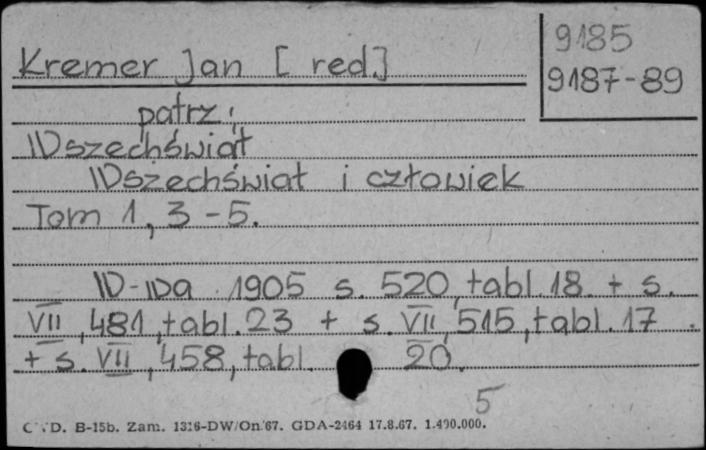 Kremer Jan [red.]
9185
9187-89
patrz:
Wszechświat
Wszechświat i człowiek
Tom 1, 3-5.
W-wa 1905 s. 520, tabl. 18. + s.
VII, 481, tabl. 23 + s. VII, 515, tabl. 17.
+ s. VII, 458, tabl. 20.
5
B-15b. Zam. 1316-DW/On/67. GDA-2464 17.8.67. 1.400.000.